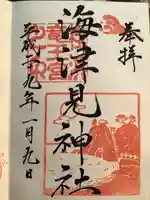 奉拝
海津見神社
平成二九年一月九日